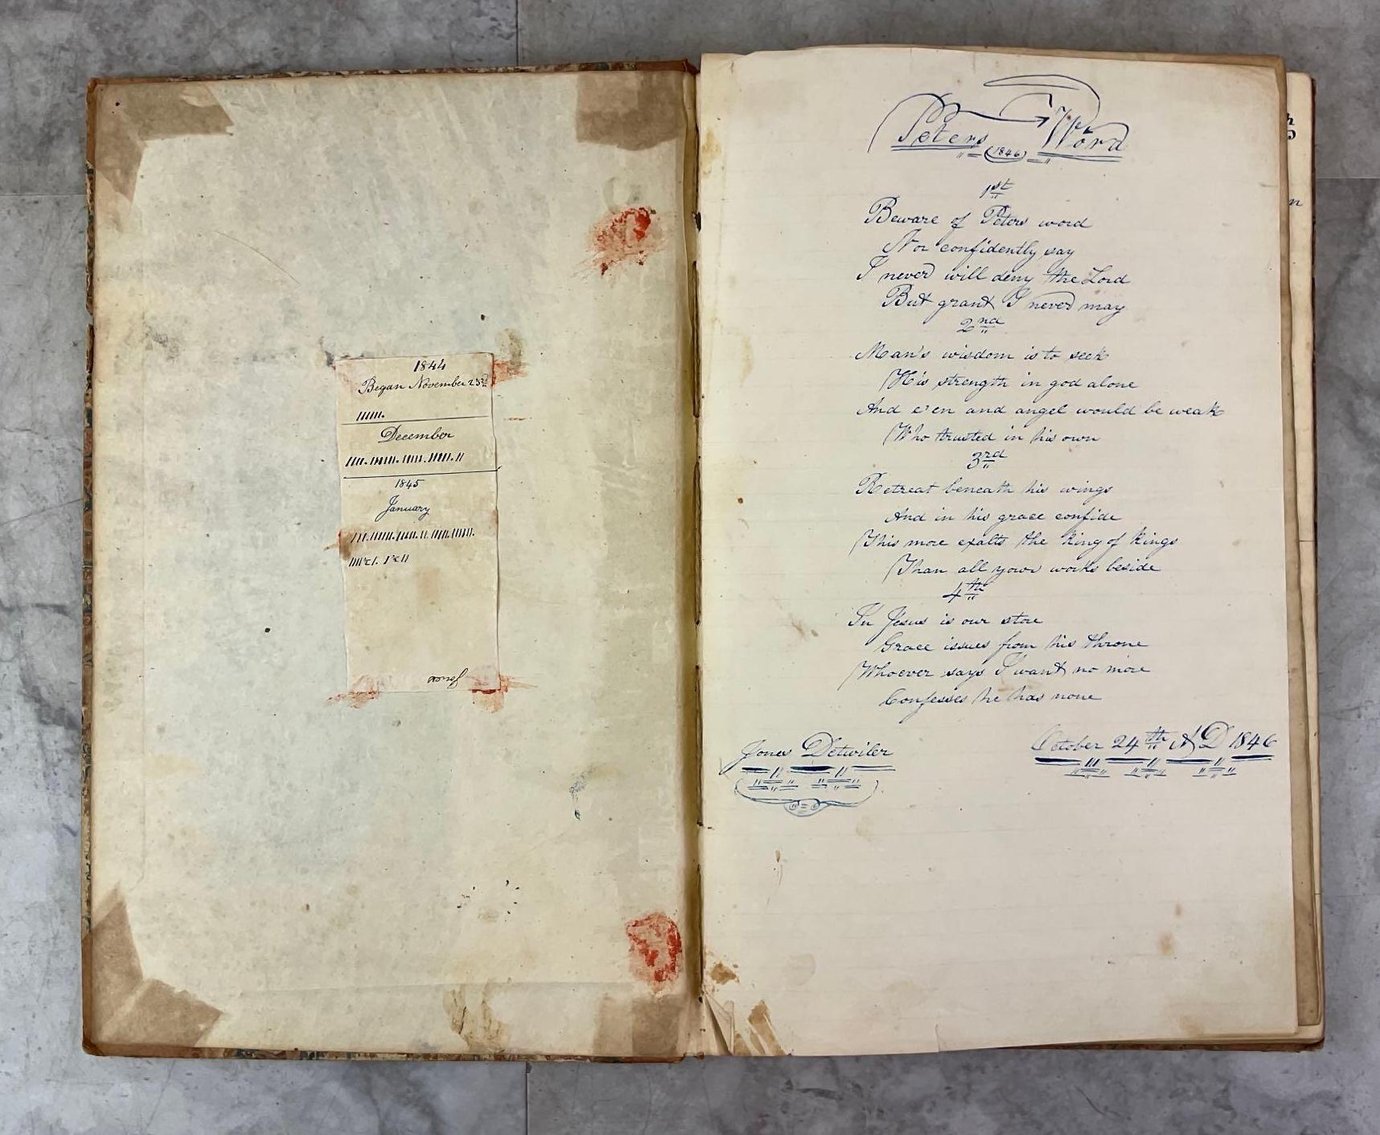 1844
Began November 25th
December
1845
January
Peters Word
(1846)
1st
Beware of Peters word
Nor confidently say
I never will deny the Lord
But grant I never may
2nd
Man's wisdom is to seek
His strength in god alone
And e'en and angel would be weak
Who trusted in his own
3rd
Retreat beneath his wings
And in his grace confide
This more exalts the king of kings
Than all your works beside
4th
In Jesus is our store
Grace issues from his throne
Whoever says I want no more
Confesses he has none
Jonas Detwiler
October 24th A D 1846